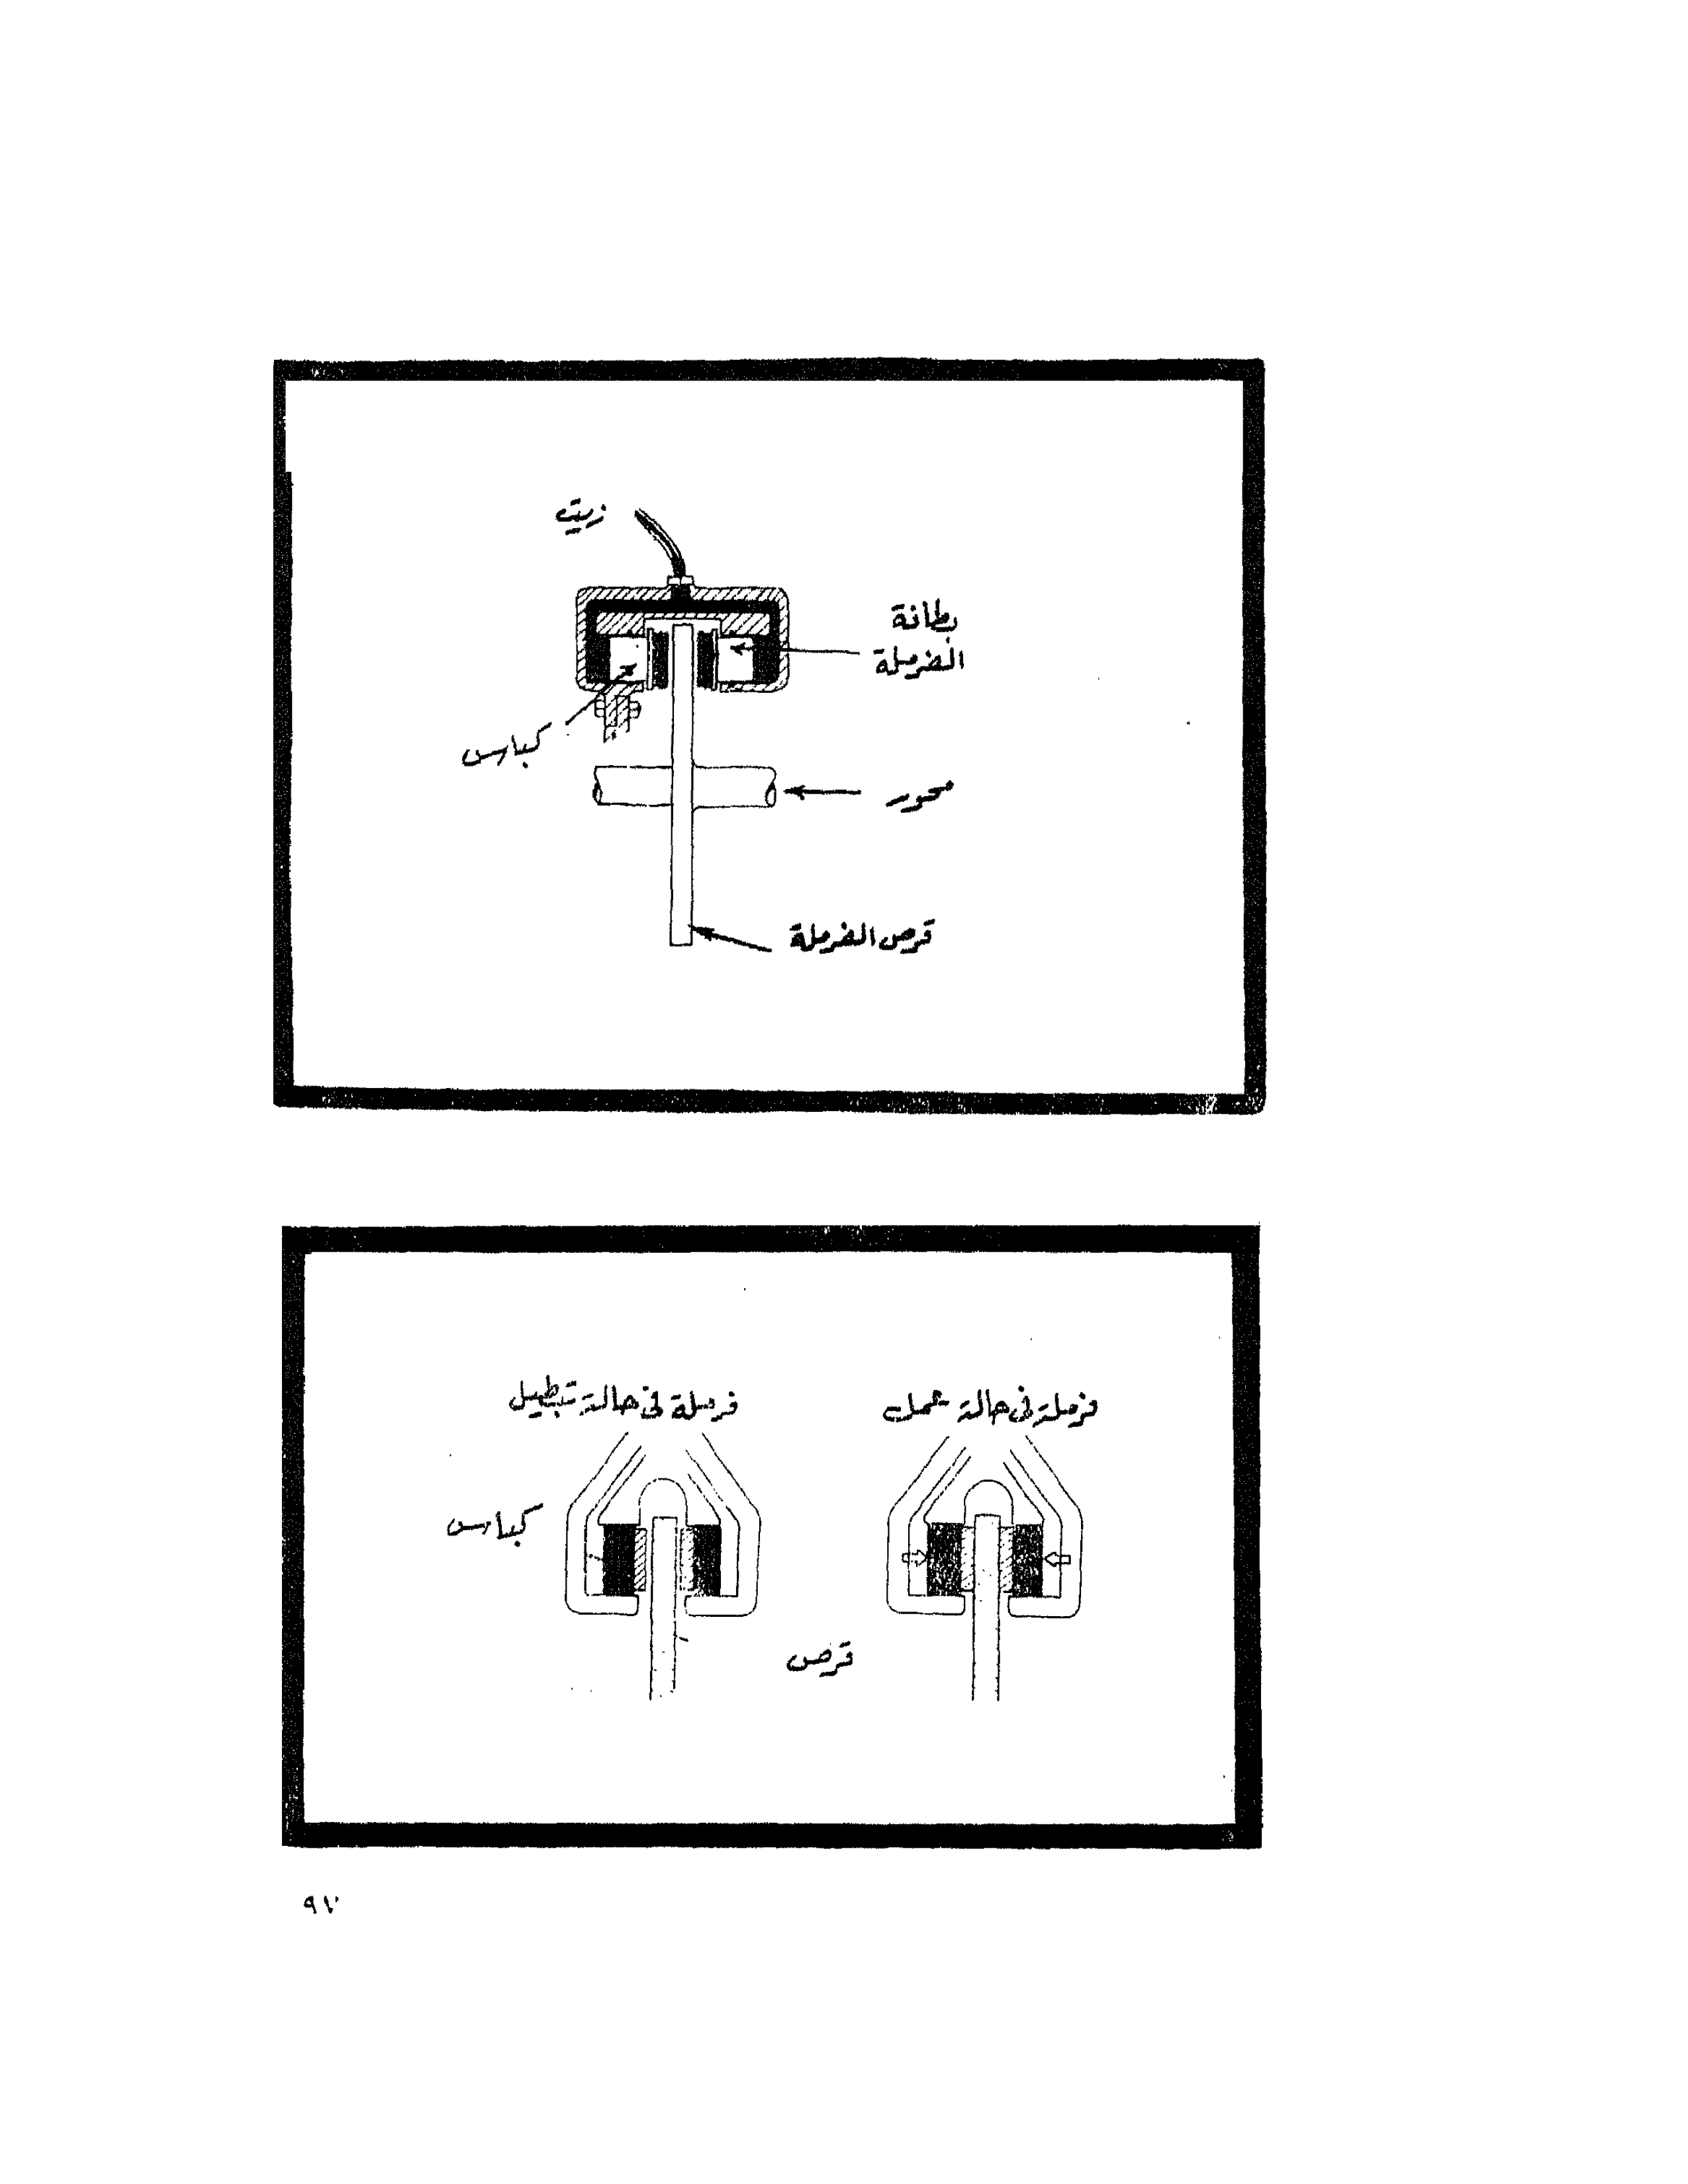 زيت
بطانة
الفرملة
كباس
محور
قرص الفرملة
فرملة فى حالة عمل
فرملة فى حالة تبطيل
كباس
قرص
٩٧